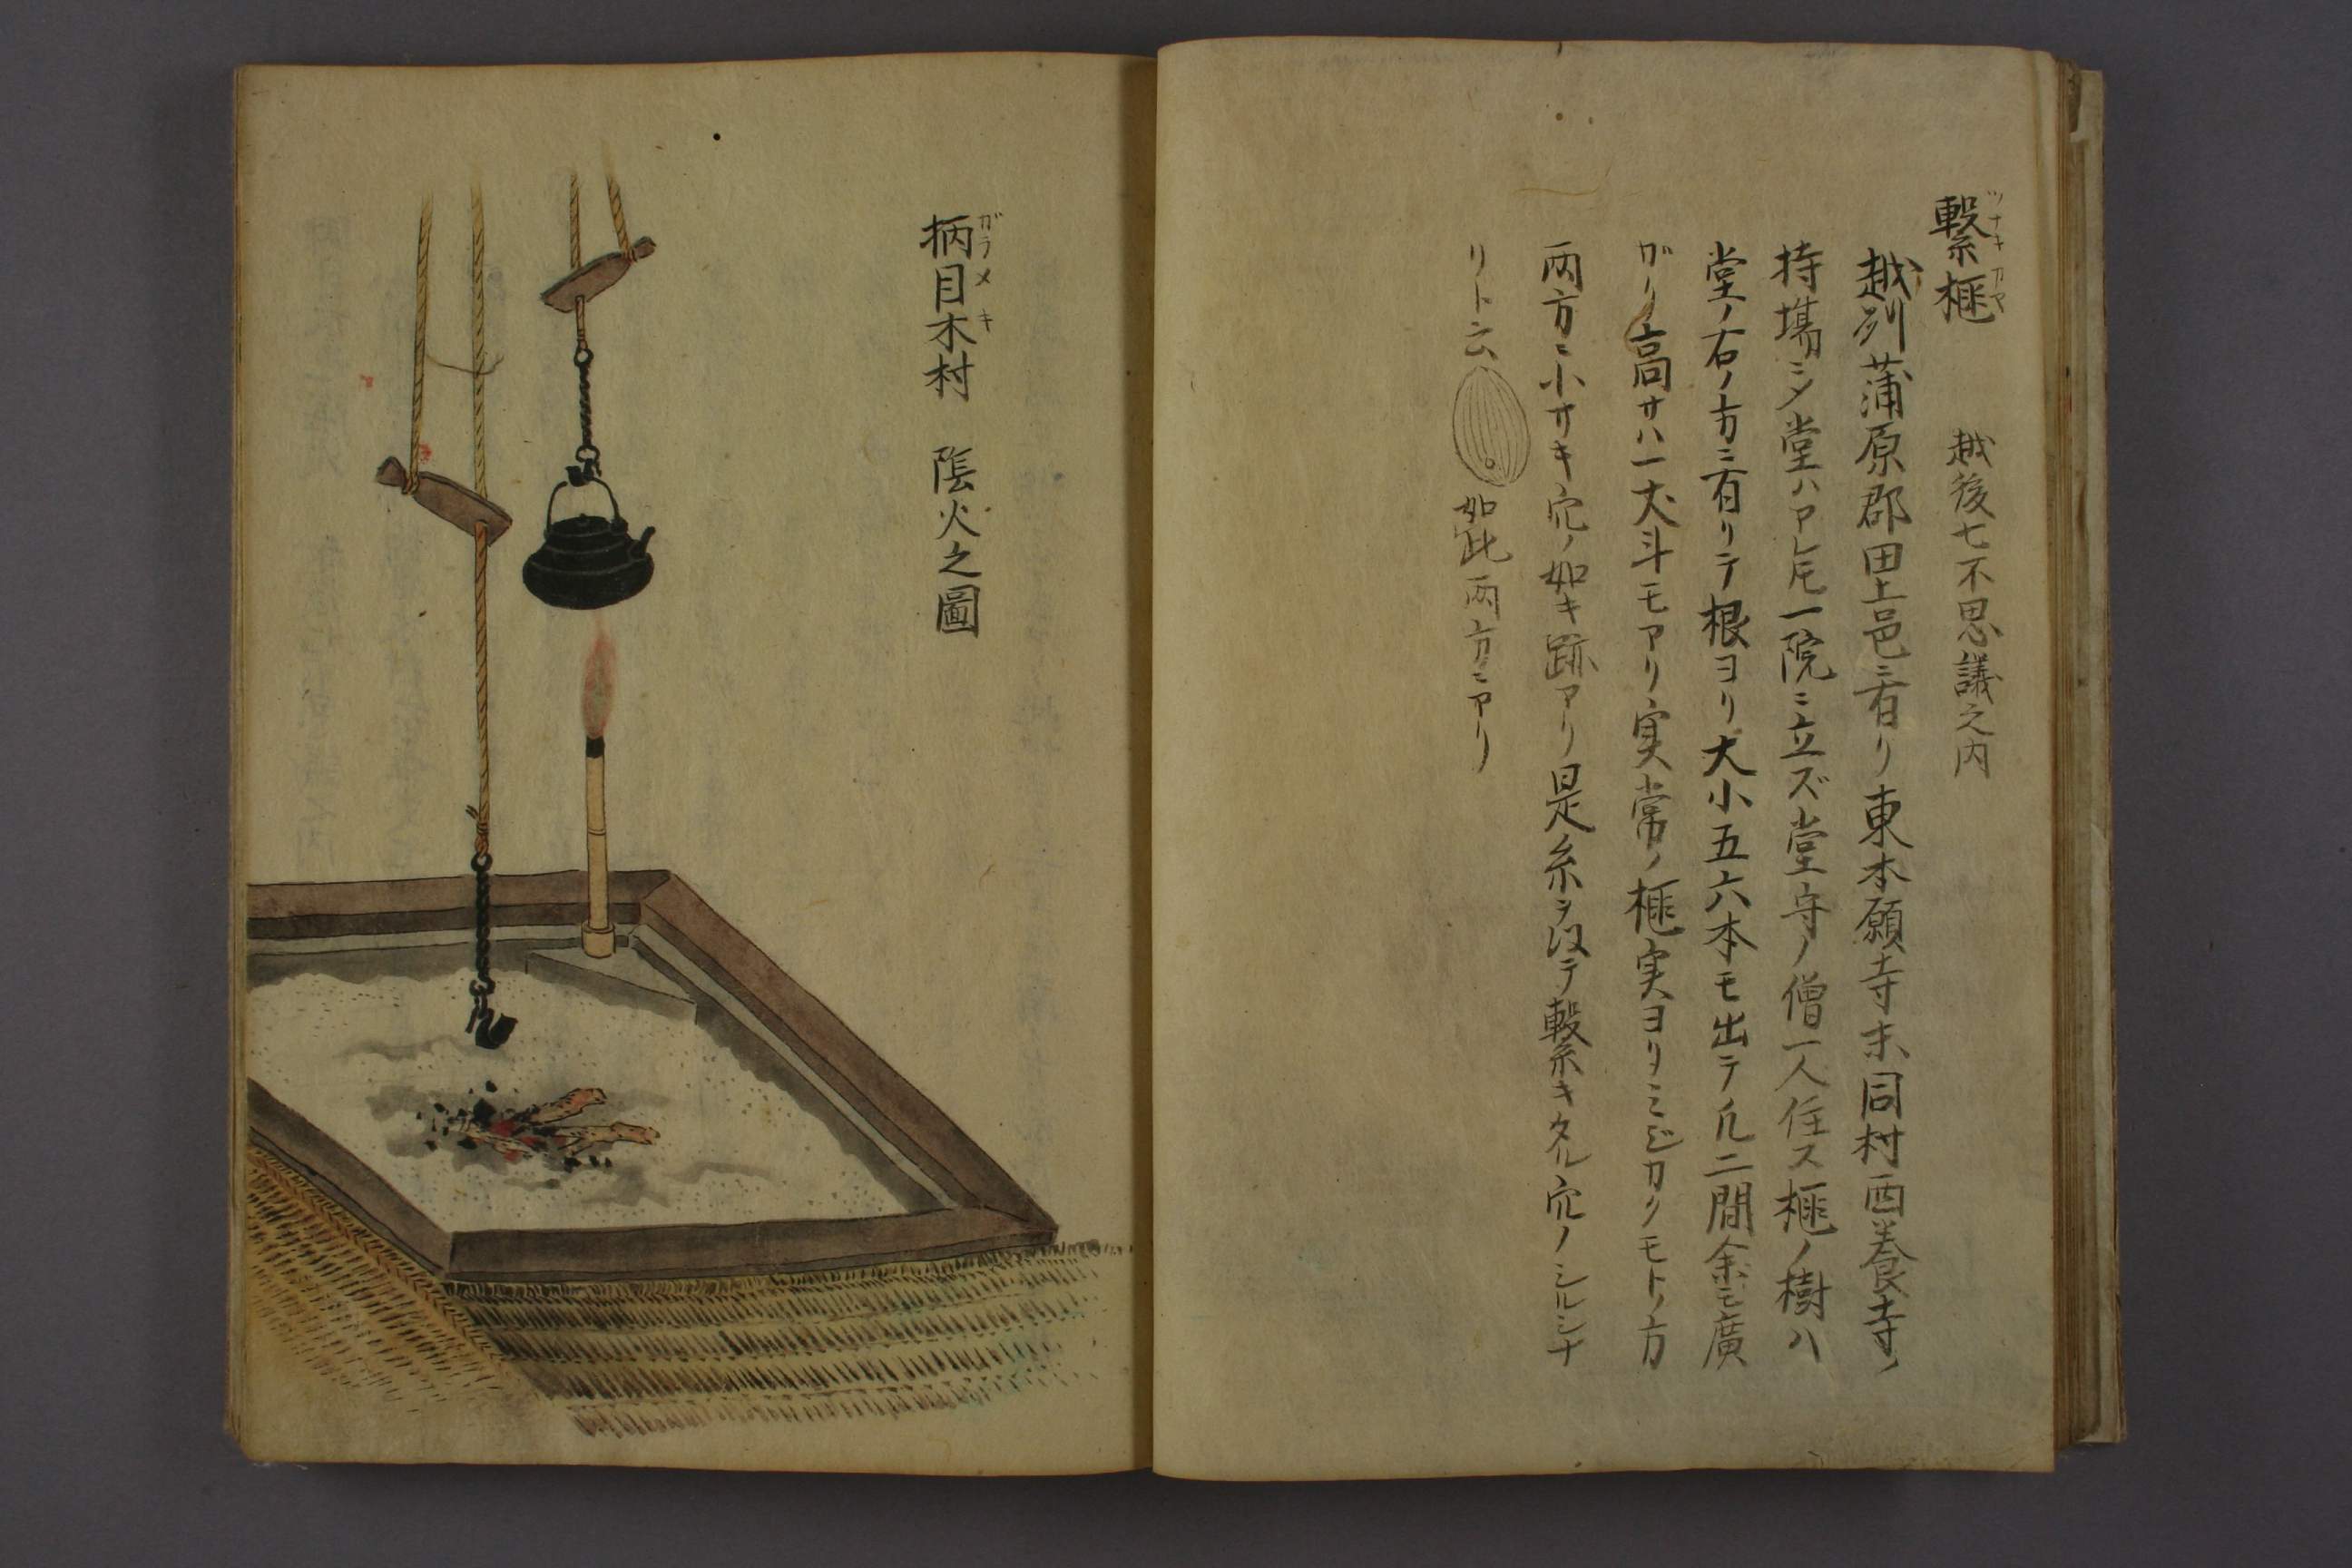 繫榧 越後七不思議之内
ツナキカヤ
越州蒲原郡田上邑ニ有リ東本願寺末同村西養寺ノ
持場ニメ堂ハアレ𪜈一院ニ立ズ堂守ノ僧一人住ス榧ノ樹ハ
堂ノ右ノ方ニ有リテ根ヨリ大小五六本モ出テ凡二間余モ廣
ガリ高サハ一丈斗モアリ実常ノ榧実ヨリミジカクモトノ方
両方ニ小サキ穴ノ如キ跡アリ是糸ヲ以テ繫キタル穴ノシルシナ
リト云 如此両方ニアリ
柄目木村 陰火之圖
ガラメキ